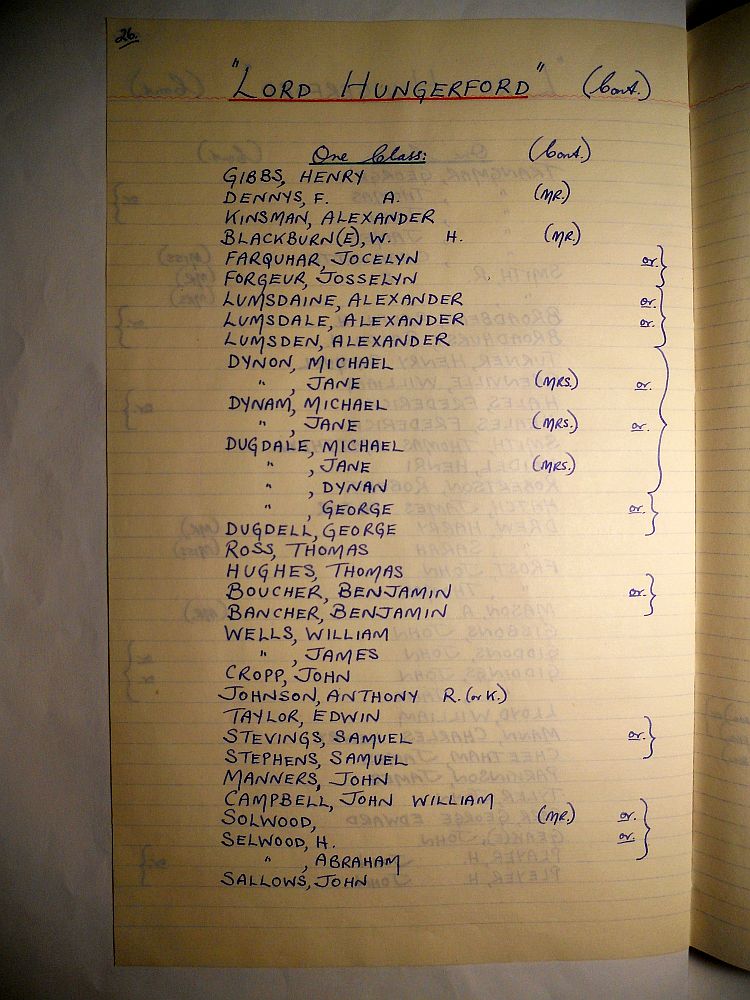 26.
"LORD HUNGERFORD" (Cont.)
One Class: (Cont.)
GIBBS, HENRY
DENNYS, F. A. (MR.)
KINSMAN, ALEXANDER
BLACKBURN(E), W. H. (MR.)
FARQUHAR, JOCELYN or.
FORGEUR, JOSSELYN
LUMSDAINE, ALEXANDER or.
LUMSDALE, ALEXANDER or.
LUMSDEN, ALEXANDER
DYNON, MICHAEL
" , JANE (MRS.) or.
DYNAM, MICHAEL
" , JANE (MRS.) or.
DUGDALE, MICHAEL
" , JANE (MRS.)
" , DYNAN
" , GEORGE or.
DUGDELL, GEORGE
ROSS, THOMAS
HUGHES, THOMAS
BOUCHER, BENJAMIN or.
BANCHER, BENJAMIN
WELLS, WILLIAM
" , JAMES
CROPP, JOHN
JOHNSON, ANTHONY R. (or K.)
TAYLOR, EDWIN
STEVINGS, SAMUEL or.
STEPHENS, SAMUEL
MANNERS, JOHN
CAMPBELL, JOHN WILLIAM
SOLWOOD, (MR.) or.
SELWOOD, H. or.
" , ABRAHAM
SALLOWS, JOHN